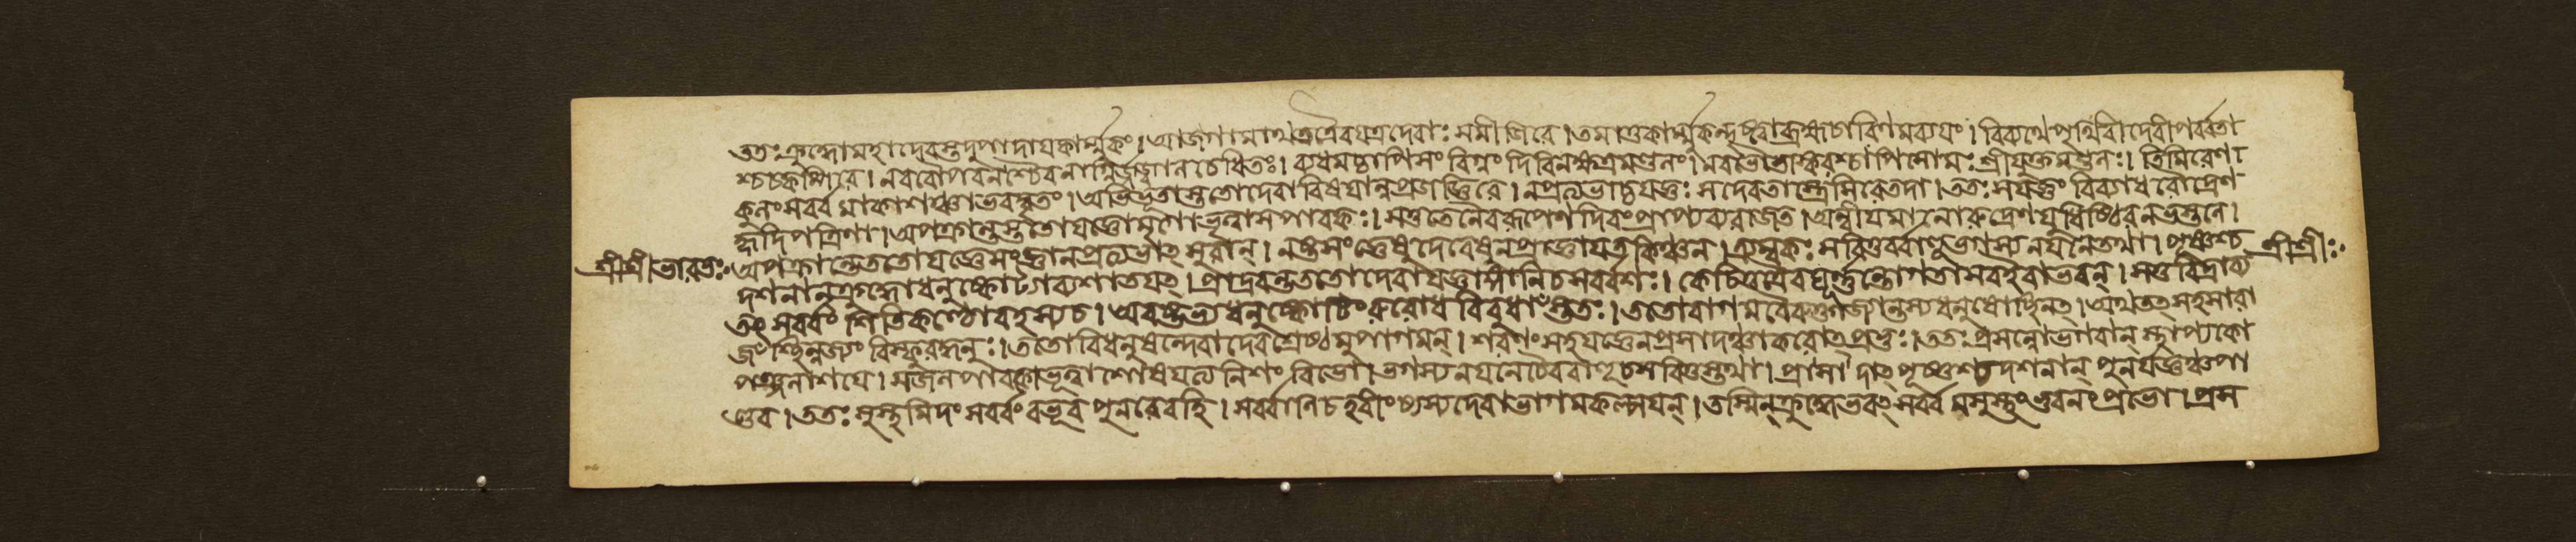 ততঃ ক্রুদ্ধো মহাদেবস্তদুপাদায কার্ম্মুকং। আজগামাথ তত্রৈব যত্র দেবাঃ সমীজিরে। তমাত্তকার্ম্মুকন্দৃষ্ট্বা ব্রহ্মচারিণমব্যযং। বিব্যথে পৃথিবী দেবী পর্ব্বতা
শ্চ চকম্পিরে। ন ববৌ পবনশ্চৈব নাগ্নির্জ্জজ্বাল চৈধিতঃ। ব্যভ্রমচ্চাপি সংবিগ্নং দিবি নক্ষত্রমণ্ডলং। ন বভৌ ভাস্করশ্চাপি সোমঃ শ্রীমুক্তমণ্ডলঃ। তিমিরেণা
কুলং সর্ব্বমাকাশঞ্চাভবদ্বৃতং। অভিভূতাস্ততো দেবা বিষযান্ন প্রজজ্ঞিরে। ন প্রত্যভাচ্চ যজ্ঞঃ স দেবতাস্ত্রেসিরে তদা। ততঃ স যজ্ঞং বিব্যাধ রৌদ্রেণ
হৃদি পত্রিণা। অপক্রান্তস্ততো যজ্ঞো মৃগো ভূত্বা সপাবকঃ। স তু তেনৈব রূপেণ দিবং প্রাপ্য ব্যরাজত। অন্বীযমানো রুদ্রেণ যুধিষ্ঠির নভস্তলে।
শ্রীশ্রীভারতঃ অপক্রান্তে ততো যজ্ঞে সংজ্ঞা ন প্রত্যভাৎ সুরান্। নষ্টসংজ্ঞেষু দেবেষু ন প্রজ্ঞাযত কিঞ্চন। ত্র্যম্বকঃ সবিতুর্ব্বাহূ ভগস্য নযনে তথা। পূষ্ণশ্চ শ্রীশ্রীঃ
দশনান্ ক্রুদ্ধো ধনুষ্কোট্যা ব্যশাতযৎ। প্রাদ্রবন্ত ততো দেবা যজ্ঞাঙ্গানি চ সর্ব্বশঃ। কেচিত্তত্রৈব ঘূর্ণ্ণন্তো গতাসব ইবাভবন্। স তু বিদ্রাব্য
তৎ সর্ব্বং শিতিকণ্ঠোবহস্য চ। অবষ্টভ্য ধনুষ্কোটিং রুরোধ বিবুধাঁস্ততঃ। ততো বাগমরৈরুক্তা জ্যান্তস্য ধনুষোচ্ছিনৎ। অথ তৎ সহসা রা
জংশ্ছিন্নজ্যং বিস্ফুরদ্ধনুঃ। ততো বিধনুষন্দেবা দেবশ্রেষ্ঠমুপাগমন্। শরণং সহ যজ্ঞেন প্রসাদঞ্চাকরোৎ প্রভুঃ। ততঃ প্রসন্নো ভগবান্ স্থাপ্য কো
পঞ্জলাশযে। স জলং পাবকো ভূত্বা শোষযত্যনিশং বিভো। ভগস্য নযনে চৈব বাহূ চ সবিতুস্তথা। প্রাদাৎ পূষ্ণশ্চ দশনান্ পুনর্যজ্ঞঞ্চ পা
ণ্ডব। ততঃ সুস্থমিদং সর্ব্বং বভূব পুনরেব হি। সর্ব্বাণি চ হবীংষ্যস্য দেবা ভাগমকল্পযন্। তস্মিন্ ক্রুদ্ধেভবৎ সর্ব্বমসুস্থং ভুবনং প্রভো। প্রস